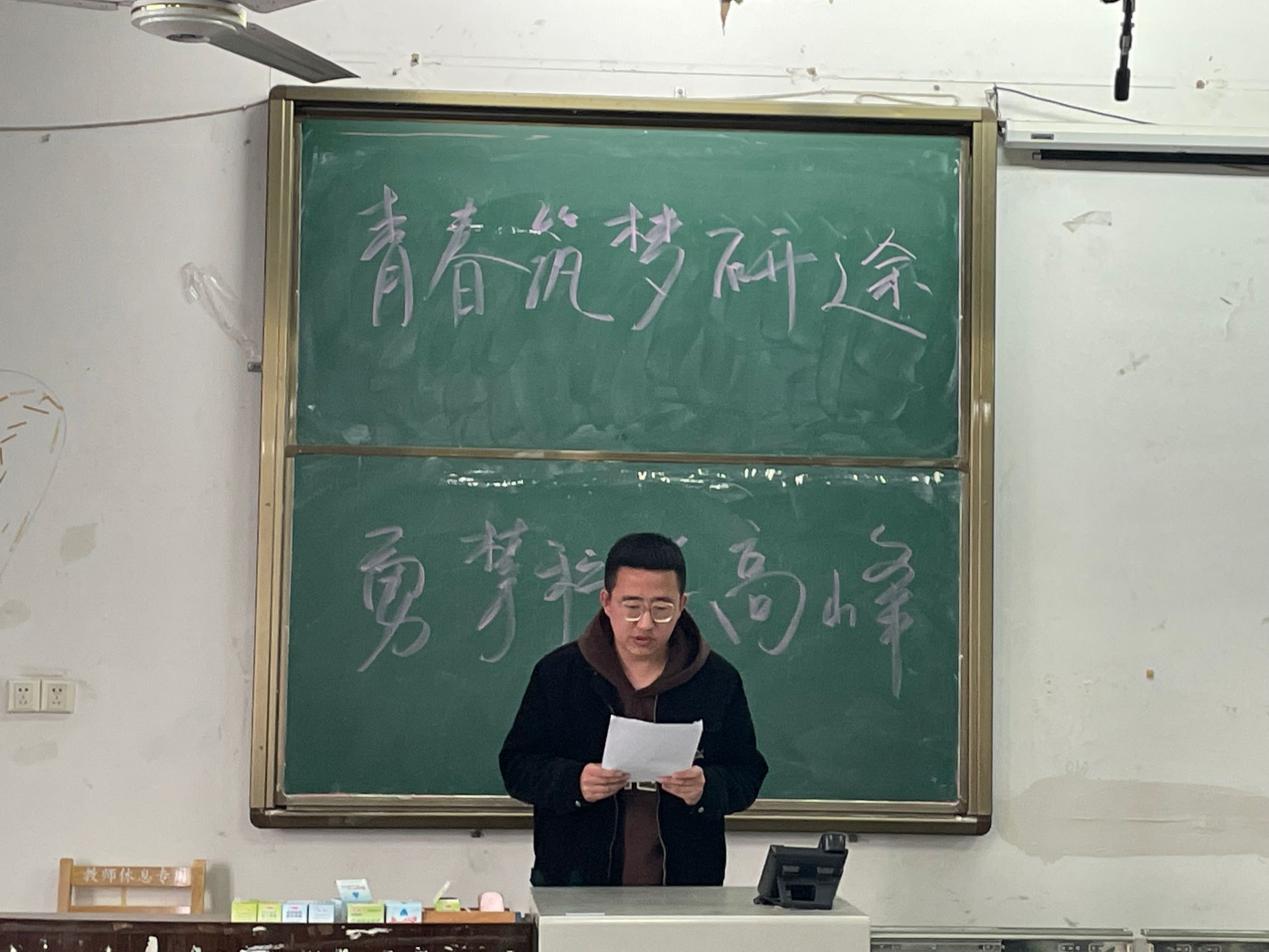 青春筑梦研途
勇攀科 高峰
教师休息专用